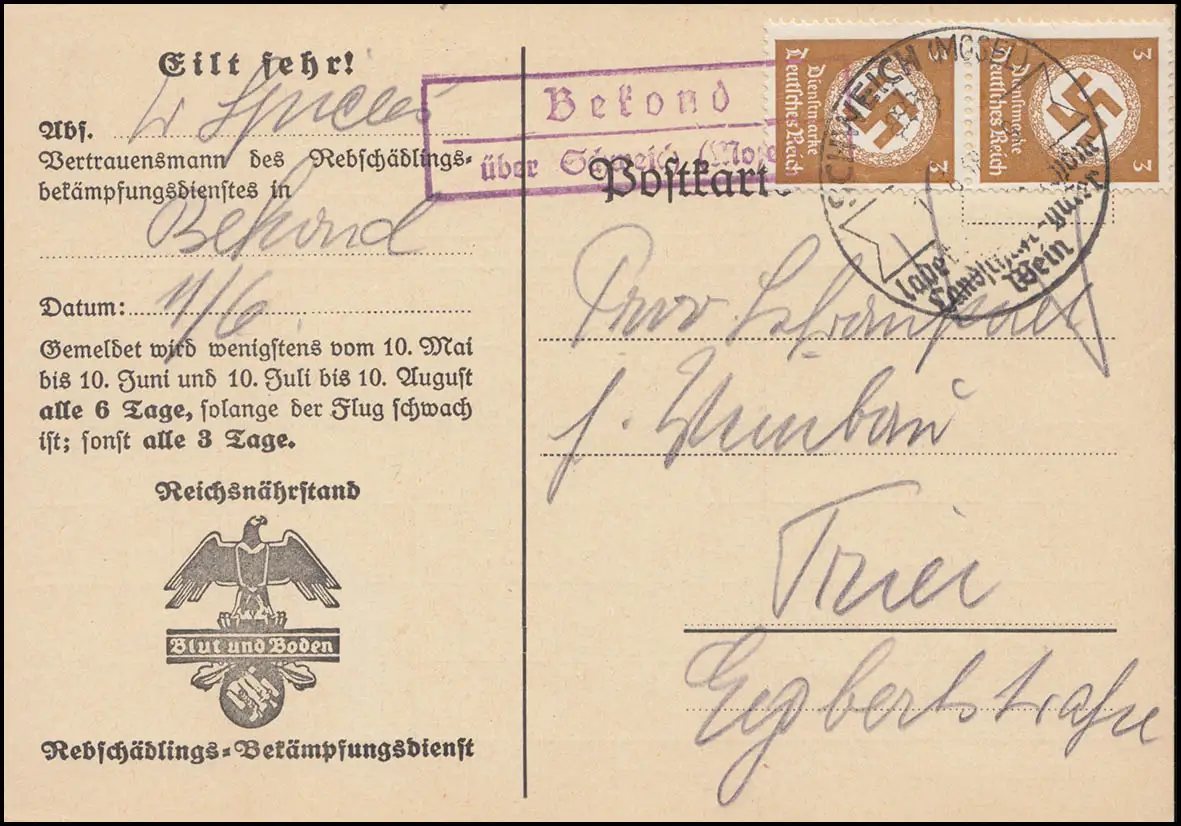 Eilt sehr!
Abs.
Vertrauensmann des Rebschädlings-
bekämpfungsdienstes in
Bekond
Datum: 11/6.
Gemeldet wird wenigstens vom 10. Mai
bis 10. Juni und 10. Juli bis 10. August
alle 6 Tage, solange der Flug schwach
ist; sonst alle 3 Tage.
Reichsnährstand
Blut und Boden
Rebschädlings-Bekämpfungsdienst
Bekond
über Schweich (Mosel
Postkarte
3 Dienstmarke 3
Deutsches Reich
3 Dienstmarke 3
Deutsches Reich
SCHWEICH (MOSEL)
Wein
Prov. Lehranstalt
f. Weinbau
Trier
Egbertstraße